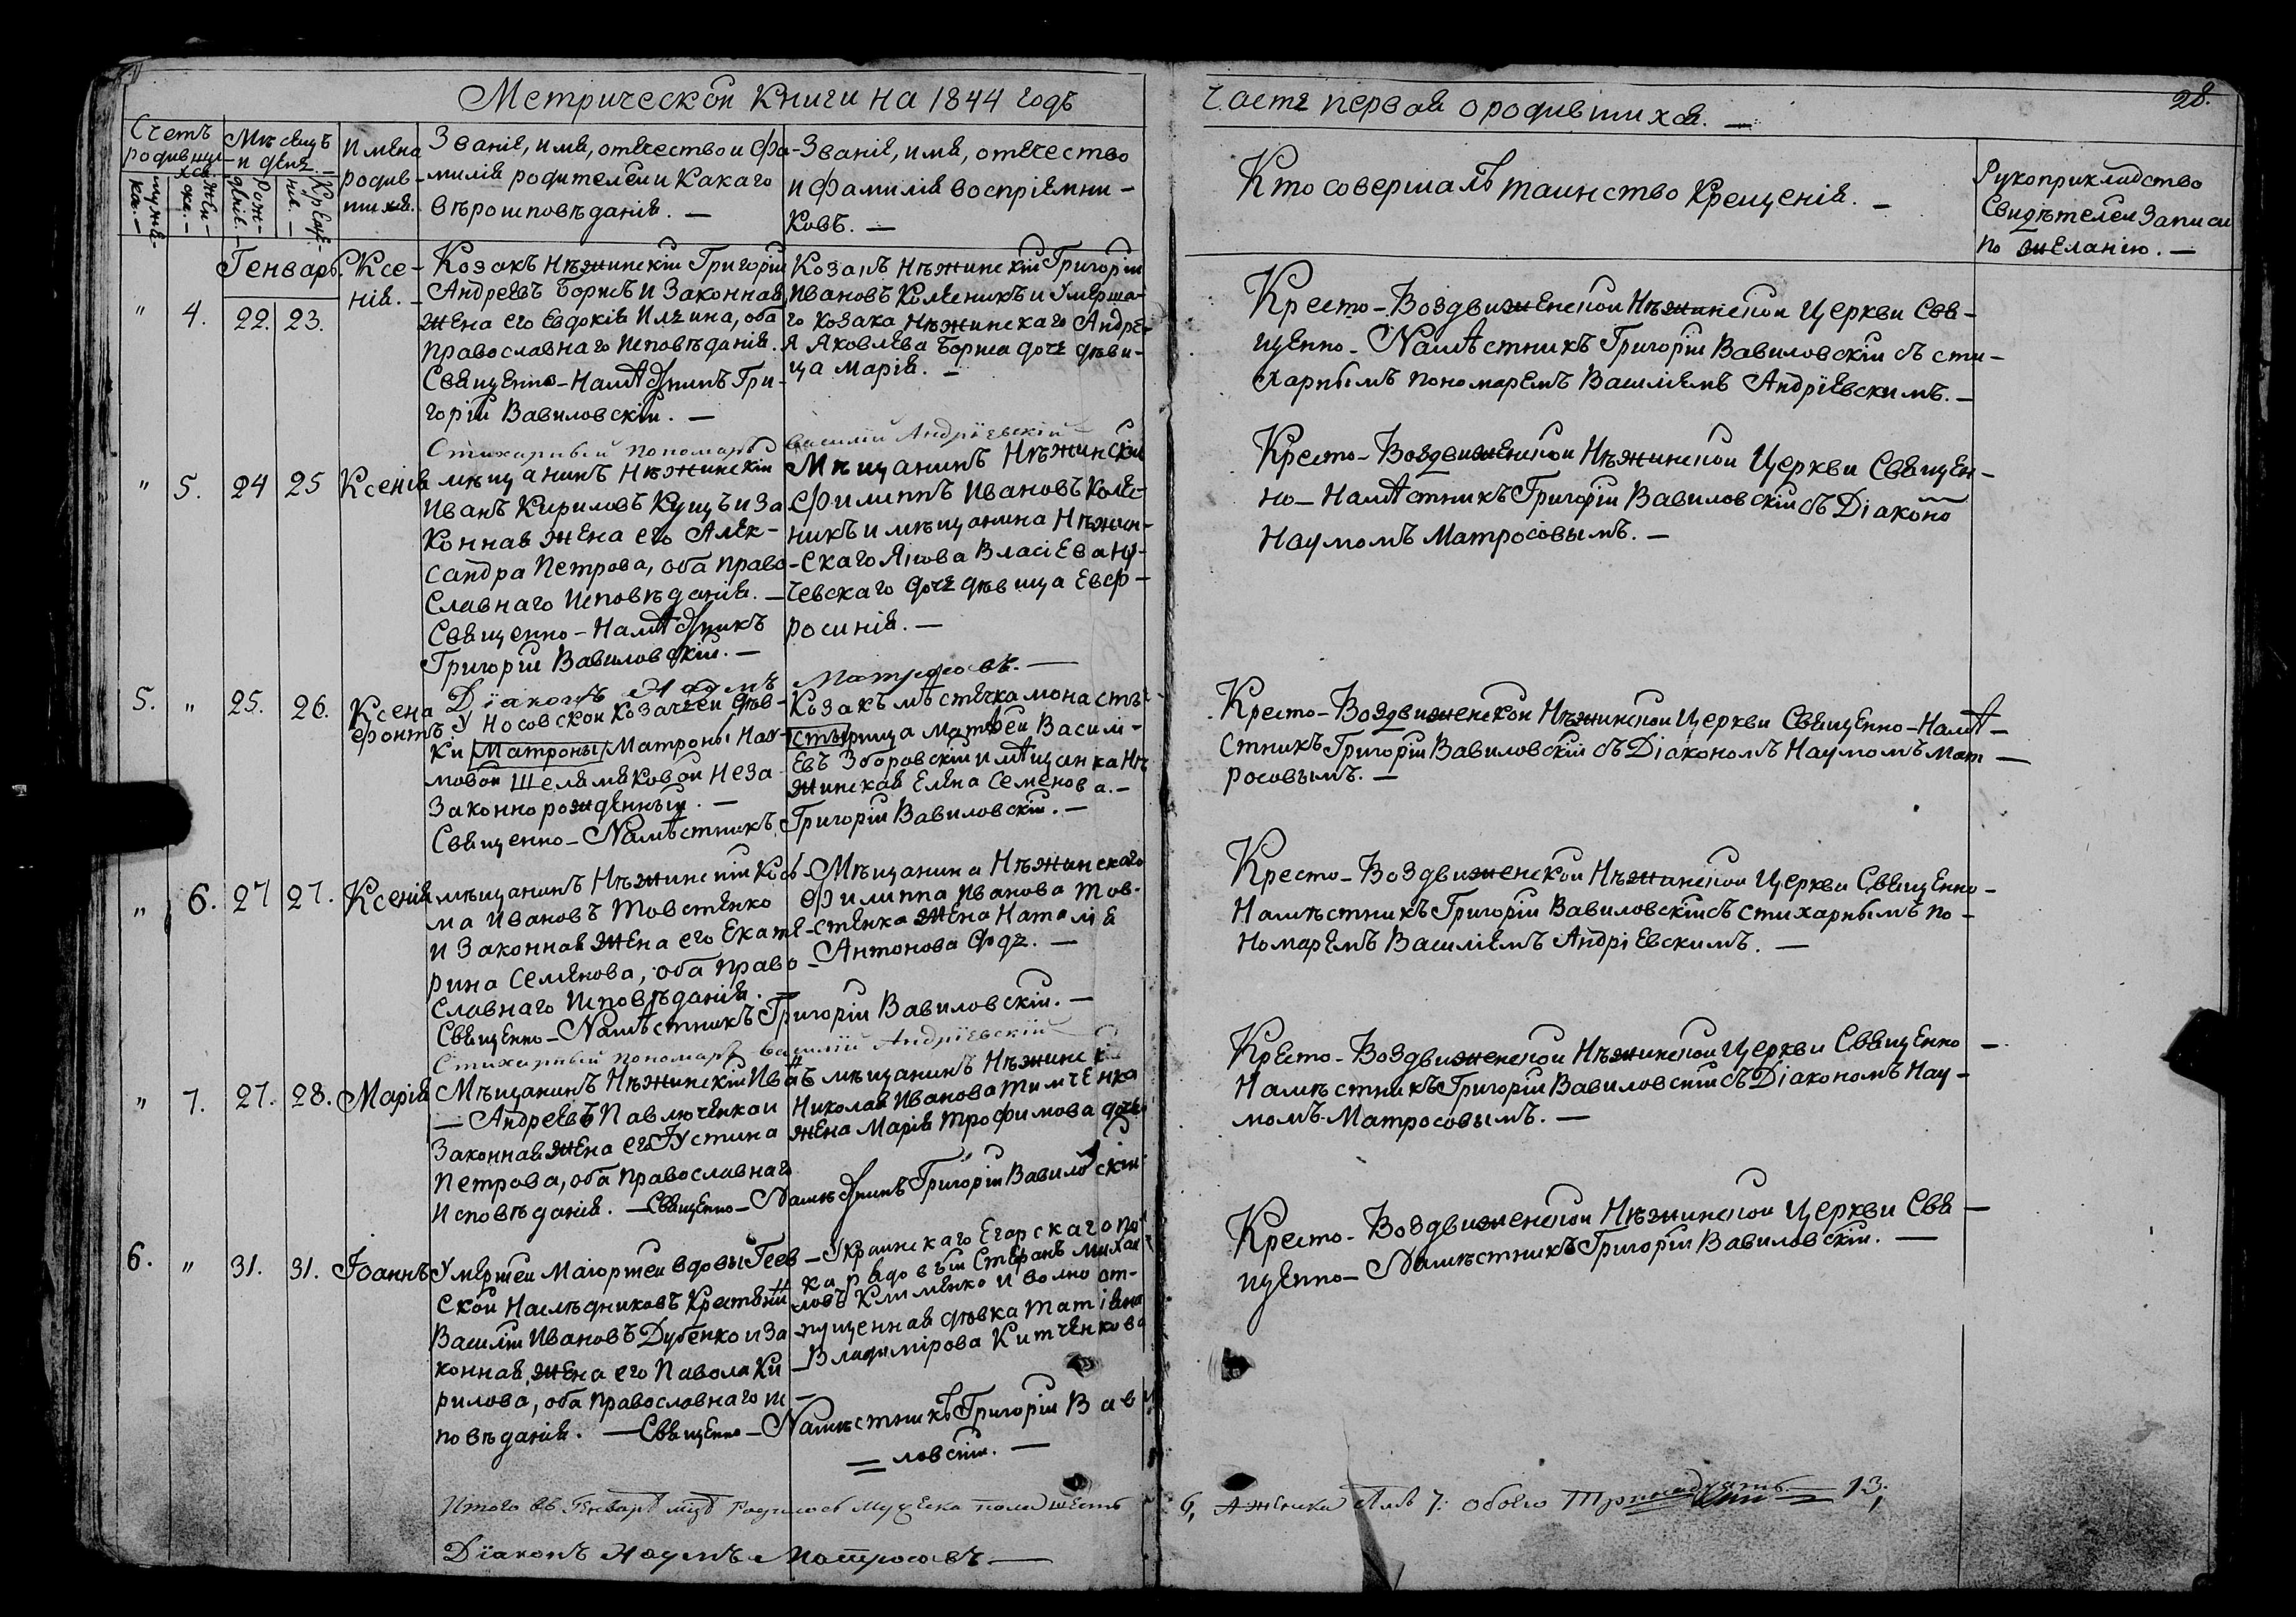 Метрической Книги на 1844 годъ
Часть первая о родившихся. —
28.
Счетъ родившихся.
мужеска. —
женска. —
Мѣсяцъ и день. —
Рождения. —
Крещения. —
Имена
родив-
шихся.
Званіе, имя, отечество и фа-
милія родителей и какаго
вѣроисповѣданія. —
Званіе, имя, отечество
и фамилія воспріемни-
ковъ. —
Кто совершалъ таинство Крещенія. —
Рукоприкладство
Свидѣтелей Записи
по желанію. —
Генварь.
" 4. 22. 23.
Ксе-
нія. —
Козакъ Нѣжинскій Григорій
Андреевъ Борисъ и Законная
жена его Евдокія Ильина, оба
православнаго исповѣданія.
Священно-Намѣстникъ Гри-
горій Вавиловскій. —
Стихарный пономарь Василій Андріевскій
Козакъ Нѣжинскій Григорій
Ивановъ Колесникъ и Умерша-
го козака Нѣжинскаго Андре-
я Яковлева Бориса дочь дѣви-
ца Марія. —
Кресто-Воздвиженской Нѣжинской Церкви Свя-
щенно-Намѣстникъ Григорій Вавиловскій съ сти-
харнымъ пономаремъ Василіемъ Андріевскимъ. —
" 5. 24 25 Ксенія
мѣщанинъ Нѣжинскій
Иванъ Кириловъ Куцъ и За
конная жена его Алек-
сандра Петрова, оба право-
славнаго исповѣданія. —
Священно-Намѣстникъ
Григорій Вавиловскій. —
Діаконъ Наумъ Матросовъ. —
Мѣщанинъ Нѣжинскій
Филиппъ Ивановъ Колес-
никъ и мѣщанина Нѣжин-
скаго Якова Власіева
чевскаго дочь дѣвица Евф-
росинія. —
Кресто-Воздвиженской Нѣжинской Церкви Священ-
но-Намѣстникъ Григорій Вавиловскій съ Діаконо
Наумомъ Матросовымъ. —
5. " 25. 26. Ксено
фонтъ
У Носовской козачьей дѣв-
ки Матроны Матроны Нау-
мовой Шелямяковой Неза
законнорожденный. —
Священно-Намѣстникъ Григорій Вавиловскій. —
Козакъ мѣстечка монасты
стырища Матѳей Васили-
евъ Зборовскій и мѣщанка Нѣ
жинская Елена Семенова. —
Кресто-Воздвиженской Нѣжинской Церкви Священно-Намѣ-
стникъ Григорій Вавиловскій съ Діакономъ Наумомъ Мат —
росовымъ. —
" 6. 27 27. Ксенія
мѣщанинъ Нѣжинскій Кось-
ма Ивановъ Товстенко
и Законная жена его Екате-
рина Семенова, оба право-
славнаго исповѣданія. —
Священно-Намѣстникъ Григорій Вавиловскій. —
Стихарный пономарь Василій Андріевскій
Мѣщанина Нѣжинскаго
Филиппа Иванова Тов-
стенка жена Наталія
Антонова —
Кресто-Воздвиженской Нѣжинской Церкви Священно-
Намѣстникъ Григорій Вавиловскій съ стихарнымъ по-
номаремъ Василіемъ Андріевскимъ. —
" 7. 27. 28. Марія
Мѣщанинъ Нѣжинскій Иванъ
— Андреевъ Павлюченко и
Законная жена его Іустина
Петрова, оба православнаго
исповѣданія. — Священно-Намѣстникъ Григорій Вавиловскій
мѣщанинъ Нѣжинск
Николая Иванова Тимченка
жена Марія Трофимова дочь
Кресто-Воздвиженской Нѣжинской Церкви Священно —
Намѣстникъ Григорій Вавиловскій съ Діакономъ Нау-
момъ Матросовымъ. —
6. " 31. 31. Іоаннъ
Умершей Маіорши вдовы Геев-
ской Наслѣдниковъ Крестянинъ
Василій Ивановъ Дубенко и За
конная жена его Павола Ки
рилова, оба православнаго ис —
повѣданія. — Священно-Намѣстникъ Григорій Вави
= ловскій. —
Украинскаго Егарскаго пол
ка рядовый Стефанъ Михаи
ловъ Клименко и волно от-
пущенная дѣвка Татіана
Владимірова Китченкова
Кресто-Воздвиженской Нѣжинской Церкви Свя —
щенно-Намѣстникъ Григорій Вавиловскій. —
Итого въ Генварѣ мцѣ родилось мужеска пола шесть 6, а женска 7: обоего Тринадцать — 13,
Діаконъ Наумъ Матросовъ. —